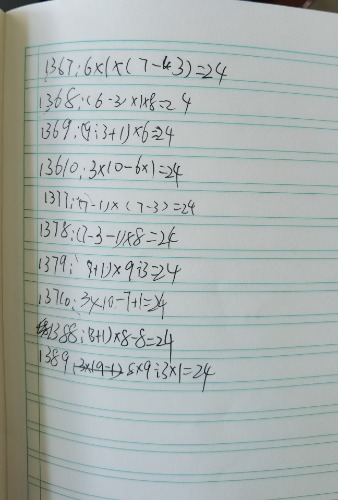 1367:6×1×(7-3)=24
1368:(6-3)×1×8=24
1369:(9÷3+1)×6=24
13610:3×10-6×1=24
1377:(7-1)×(7-3)=24
1378:(7-3-1)×8=24
1379:(7+1)×9÷3=24
13710:3×10-7+1=24
1388:(3+1)×8-8=24
1389 8×9÷3×1=24